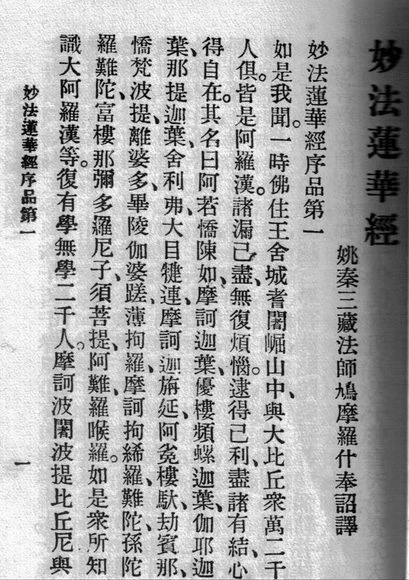 妙法蓮華經
姚秦三藏法師鳩摩羅什奉詔譯
妙法蓮華經序品第一
如是我聞一時佛住王舍城耆闍崛山中、與大比丘衆萬二千
人俱。皆是阿羅漢。諸漏已盡、無復煩惱、逮得己利、盡諸有結、心
得自在。其名曰阿若憍陳如、摩訶迦葉、優樓頻螺迦葉、伽耶迦
葉、那提迦葉、舍利弗、大目犍連、摩訶迦旃延、阿㝹樓馱、劫賓那、
憍梵波提、離婆多、畢陵伽婆蹉、薄拘羅、摩訶拘絺羅、難陀、孫陀
羅難陀、富樓那彌多羅尼子、須菩提、阿難、羅睺羅。如是衆所知
識大阿羅漢等。復有學無學二千人。摩訶波闍波提比丘尼與
妙法蓮華經序品第一
一